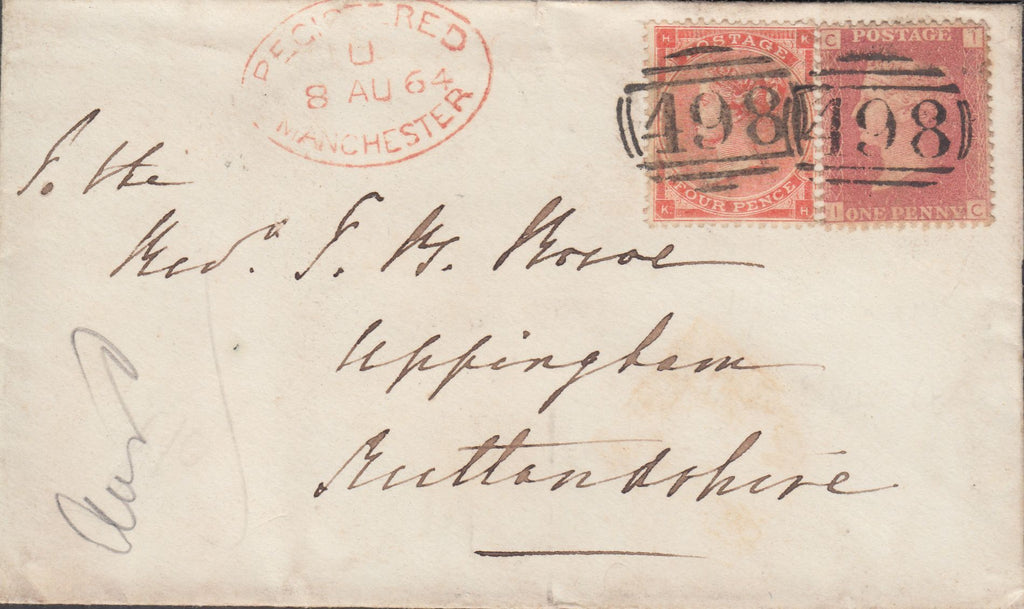 REGISTERED
U
8 AU 64
MANCHESTER
H K
POSTAGE
FOUR PENCE
K H
C I
POSTAGE
I ONE PENNY C
498 498
To the
Revd. T. B. Rowe
Uppingham
Ruttandshire